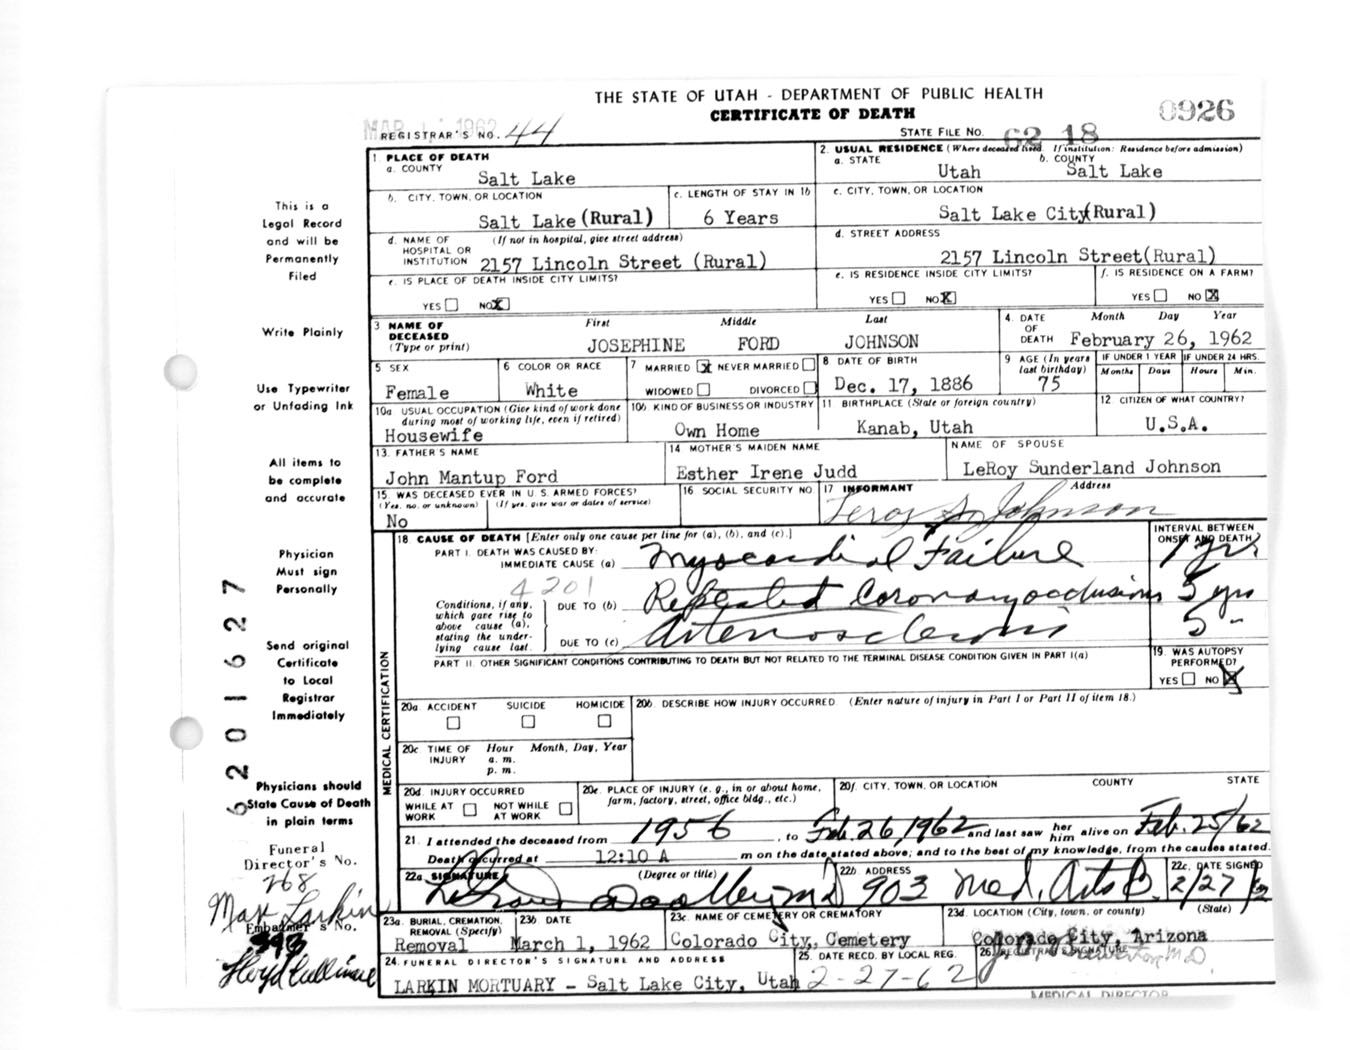 THE STATE OF UTAH - DEPARTMENT OF PUBLIC HEALTH
CERTIFICATE OF DEATH
0926
MAR 1 1962
REGISTRAR'S NO. 44
STATE FILE NO. 62 18
This is a
Legal Record
and will be
Permanently
Filed
Write Plainly
Use Typewriter
or Unfading Ink
All items to
be complete
and accurate
Physician
Must sign
Personally
Send original
Certificate
to Local
Registrar
Immediately
Physicians should
State Cause of Death
in plain terms
6201627
Funeral
Director's No.
268
Max Larkin
Embalmer's No.
Floyd
1. PLACE OF DEATH
a. COUNTY
Salt Lake
2. USUAL RESIDENCE (Where deceased lived. If institution: Residence before admission)
a. STATE b. COUNTY
Utah Salt Lake
b. CITY, TOWN, OR LOCATION
Salt Lake (Rural)
c. LENGTH OF STAY IN 1b
6 Years
c. CITY, TOWN, OR LOCATION
Salt Lake City(Rural)
d. NAME OF (If not in hospital, give street address)
HOSPITAL OR
INSTITUTION 2157 Lincoln Street (Rural)
d. STREET ADDRESS
2157 Lincoln Street(Rural)
e. IS PLACE OF DEATH INSIDE CITY LIMITS?
YES NO X
e. IS RESIDENCE INSIDE CITY LIMITS?
YES NO X
f. IS RESIDENCE ON A FARM?
YES NO X
3 NAME OF DECEASED (Type or print)
First Middle Last
JOSEPHINE FORD JOHNSON
4. DATE OF DEATH Month Day Year
February 26, 1962
5 SEX
Female
6 COLOR OR RACE
White
7 MARRIED X NEVER MARRIED
WIDOWED DIVORCED
8 DATE OF BIRTH
Dec. 17, 1886
9 AGE (In years last birthday)
75
IF UNDER 1 YEAR IF UNDER 24 HRS.
Months Days Hours Min.
10a USUAL OCCUPATION (Give kind of work done
during most of working life, even if retired)
Housewife
10b KIND OF BUSINESS OR INDUSTRY
Own Home
11 BIRTHPLACE (State or foreign country)
Kanab, Utah
12 CITIZEN OF WHAT COUNTRY?
U.S.A.
13. FATHER'S NAME
John Mantup Ford
14 MOTHER'S MAIDEN NAME
Esther Irene Judd
NAME OF SPOUSE
LeRoy Sunderland Johnson
15. WAS DECEASED EVER IN U.S. ARMED FORCES?
(Yes, no, or unknown) (If yes, give war or dates of service)
No
16 SOCIAL SECURITY NO.
17 INFORMANT Address
Leroy S. Johnson
18. CAUSE OF DEATH [Enter only one cause per line for (a), (b), and (c).]
INTERVAL BETWEEN
ONSET AND DEATH
PART I. DEATH WAS CAUSED BY:
IMMEDIATE CAUSE (a) Myocardial Failure 1 yr
4201
Conditions, if any,
which gave rise to
above cause (a),
stating the under-
lying cause last.
DUE TO (b) Repeated Coronary occlusions 5 yrs
DUE TO (c) Arteriosclerosis 5 "
PART II. OTHER SIGNIFICANT CONDITIONS CONTRIBUTING TO DEATH BUT NOT RELATED TO THE TERMINAL DISEASE CONDITION GIVEN IN PART I(a)
19. WAS AUTOPSY
PERFORMED?
YES NO X
MEDICAL CERTIFICATION
20a. ACCIDENT SUICIDE HOMICIDE
20b. DESCRIBE HOW INJURY OCCURRED. (Enter nature of injury in Part I or Part II of item 18.)
20c TIME OF INJURY Hour Month, Day, Year
a. m.
p. m.
20d. INJURY OCCURRED
WHILE AT WORK NOT WHILE AT WORK
20e. PLACE OF INJURY (e. g., in or about home,
farm, factory, street, office bldg., etc.)
20f. CITY, TOWN, OR LOCATION COUNTY STATE
21. I attended the deceased from 1956, to Feb. 26, 1962 and last saw her him alive on Feb. 25/62
Death occurred at 12:10 A m on the date stated above; and to the best of my knowledge, from the causes stated.
22a. SIGNATURE (Degree or title)
MD
22b. ADDRESS
903 Med. Arts B.
22c. DATE SIGNED
2/27/62
23a. BURIAL, CREMATION,
REMOVAL (Specify)
Removal
23b DATE
March 1, 1962
23c. NAME OF CEMETERY OR CREMATORY
Colorado City, Cemetery
23d. LOCATION (City, town, or county) (State)
Colorado City, Arizona
24. FUNERAL DIRECTOR'S SIGNATURE AND ADDRESS
LARKIN MORTUARY - Salt Lake City, Utah
25. DATE RECD. BY LOCAL REG.
2-27-62
26. REGISTRAR'S SIGNATURE
MEDICAL DIRECTOR